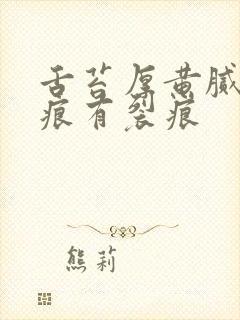 舌苔厚黄腻
痕有裂痕
熊莉